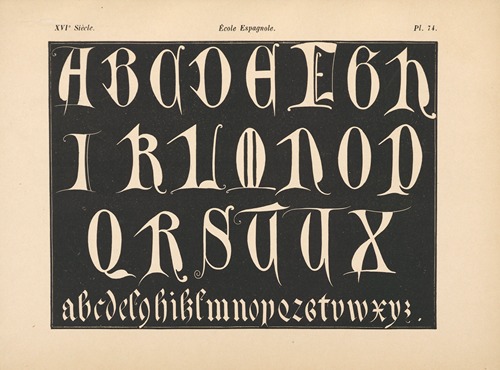 XVIe Siècle. École Espagnole. Pl. 74.
A B C D E E G h
I K L M N O P
Q R S T U X
abcdefghiklmnopqrstvwxyz.